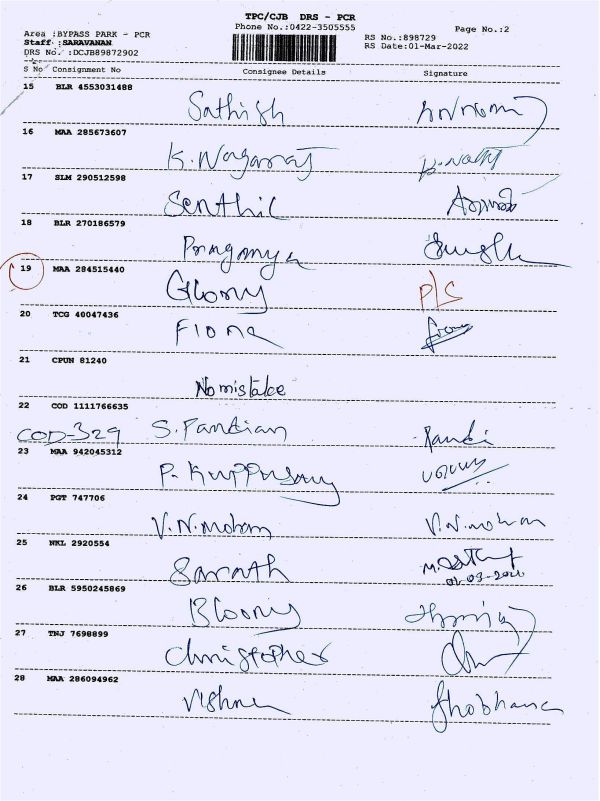 TPC/CJB DRS - PCR
Phone No.:0422-3505555
Page No.:2
Area :BYPASS PARK - PCR
Staff :SARAVANAN
DRS No. :DCJB89872902
RS No.:898729
RS Date:01-Mar-2022
S No Consignment No Consignee Details Signature
15 BLR 4553031488
Sathish
16 MAA 285673607
K. Nagarraj
17 SLM 290512598
Senthil
18 BLR 270186579
19 MAA 284515440
Gloory P/S
20 TCG 40047436
FIONA
21 CPUN 81240
No mistake
22 COD 1111766635
COD-329 S. Pandian Pandi
23 MAA 942045312
P. Kuppusamy
24 PGT 747706
V.N.mohan V.N.mohan
25 NKL 2920554
Sarath
26 BLR 5950245869
Bloory
27 TNJ 7698899
Christopher
28 MAA 286094962
Vishnu Shobhana